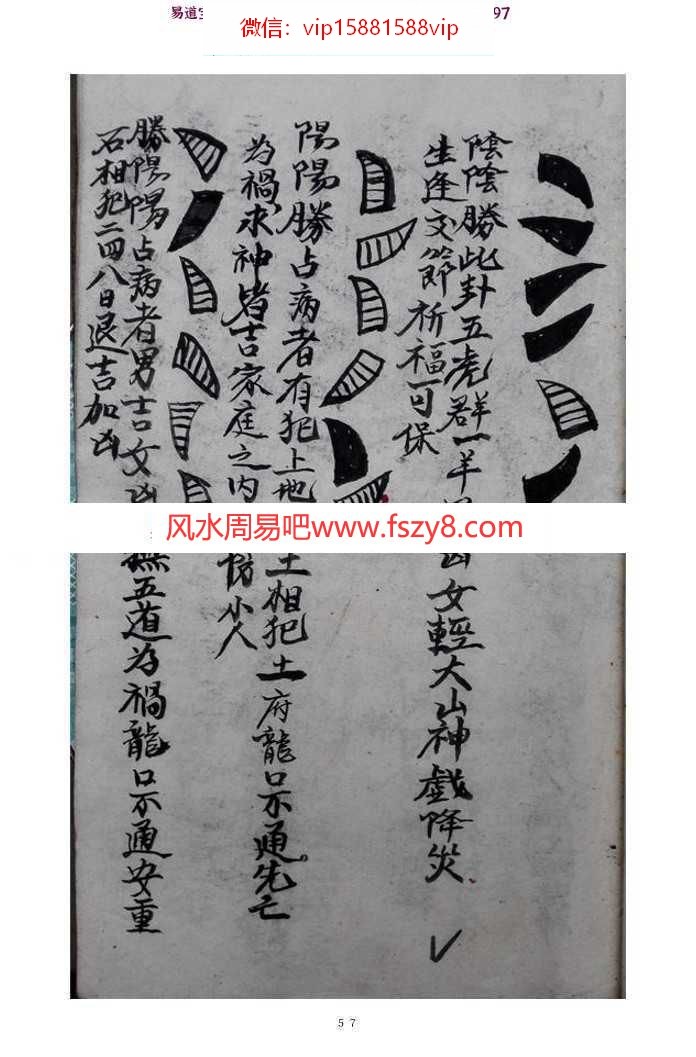 易道
97
微信：vip15881588vip
陰陰勝此卦五虎群一羊
女輕大山神戲降災
生逢交節祈福可保
陽陽勝占病者有犯上地
土相犯土府龍口不通先亡
為禍求神皆吉家庭之内
防小人
勝陽陽占病者男吉女凶
五道為禍龍口不通安重
石相犯二四八日退吉加凶
风水周易吧www.fszy8.com
57